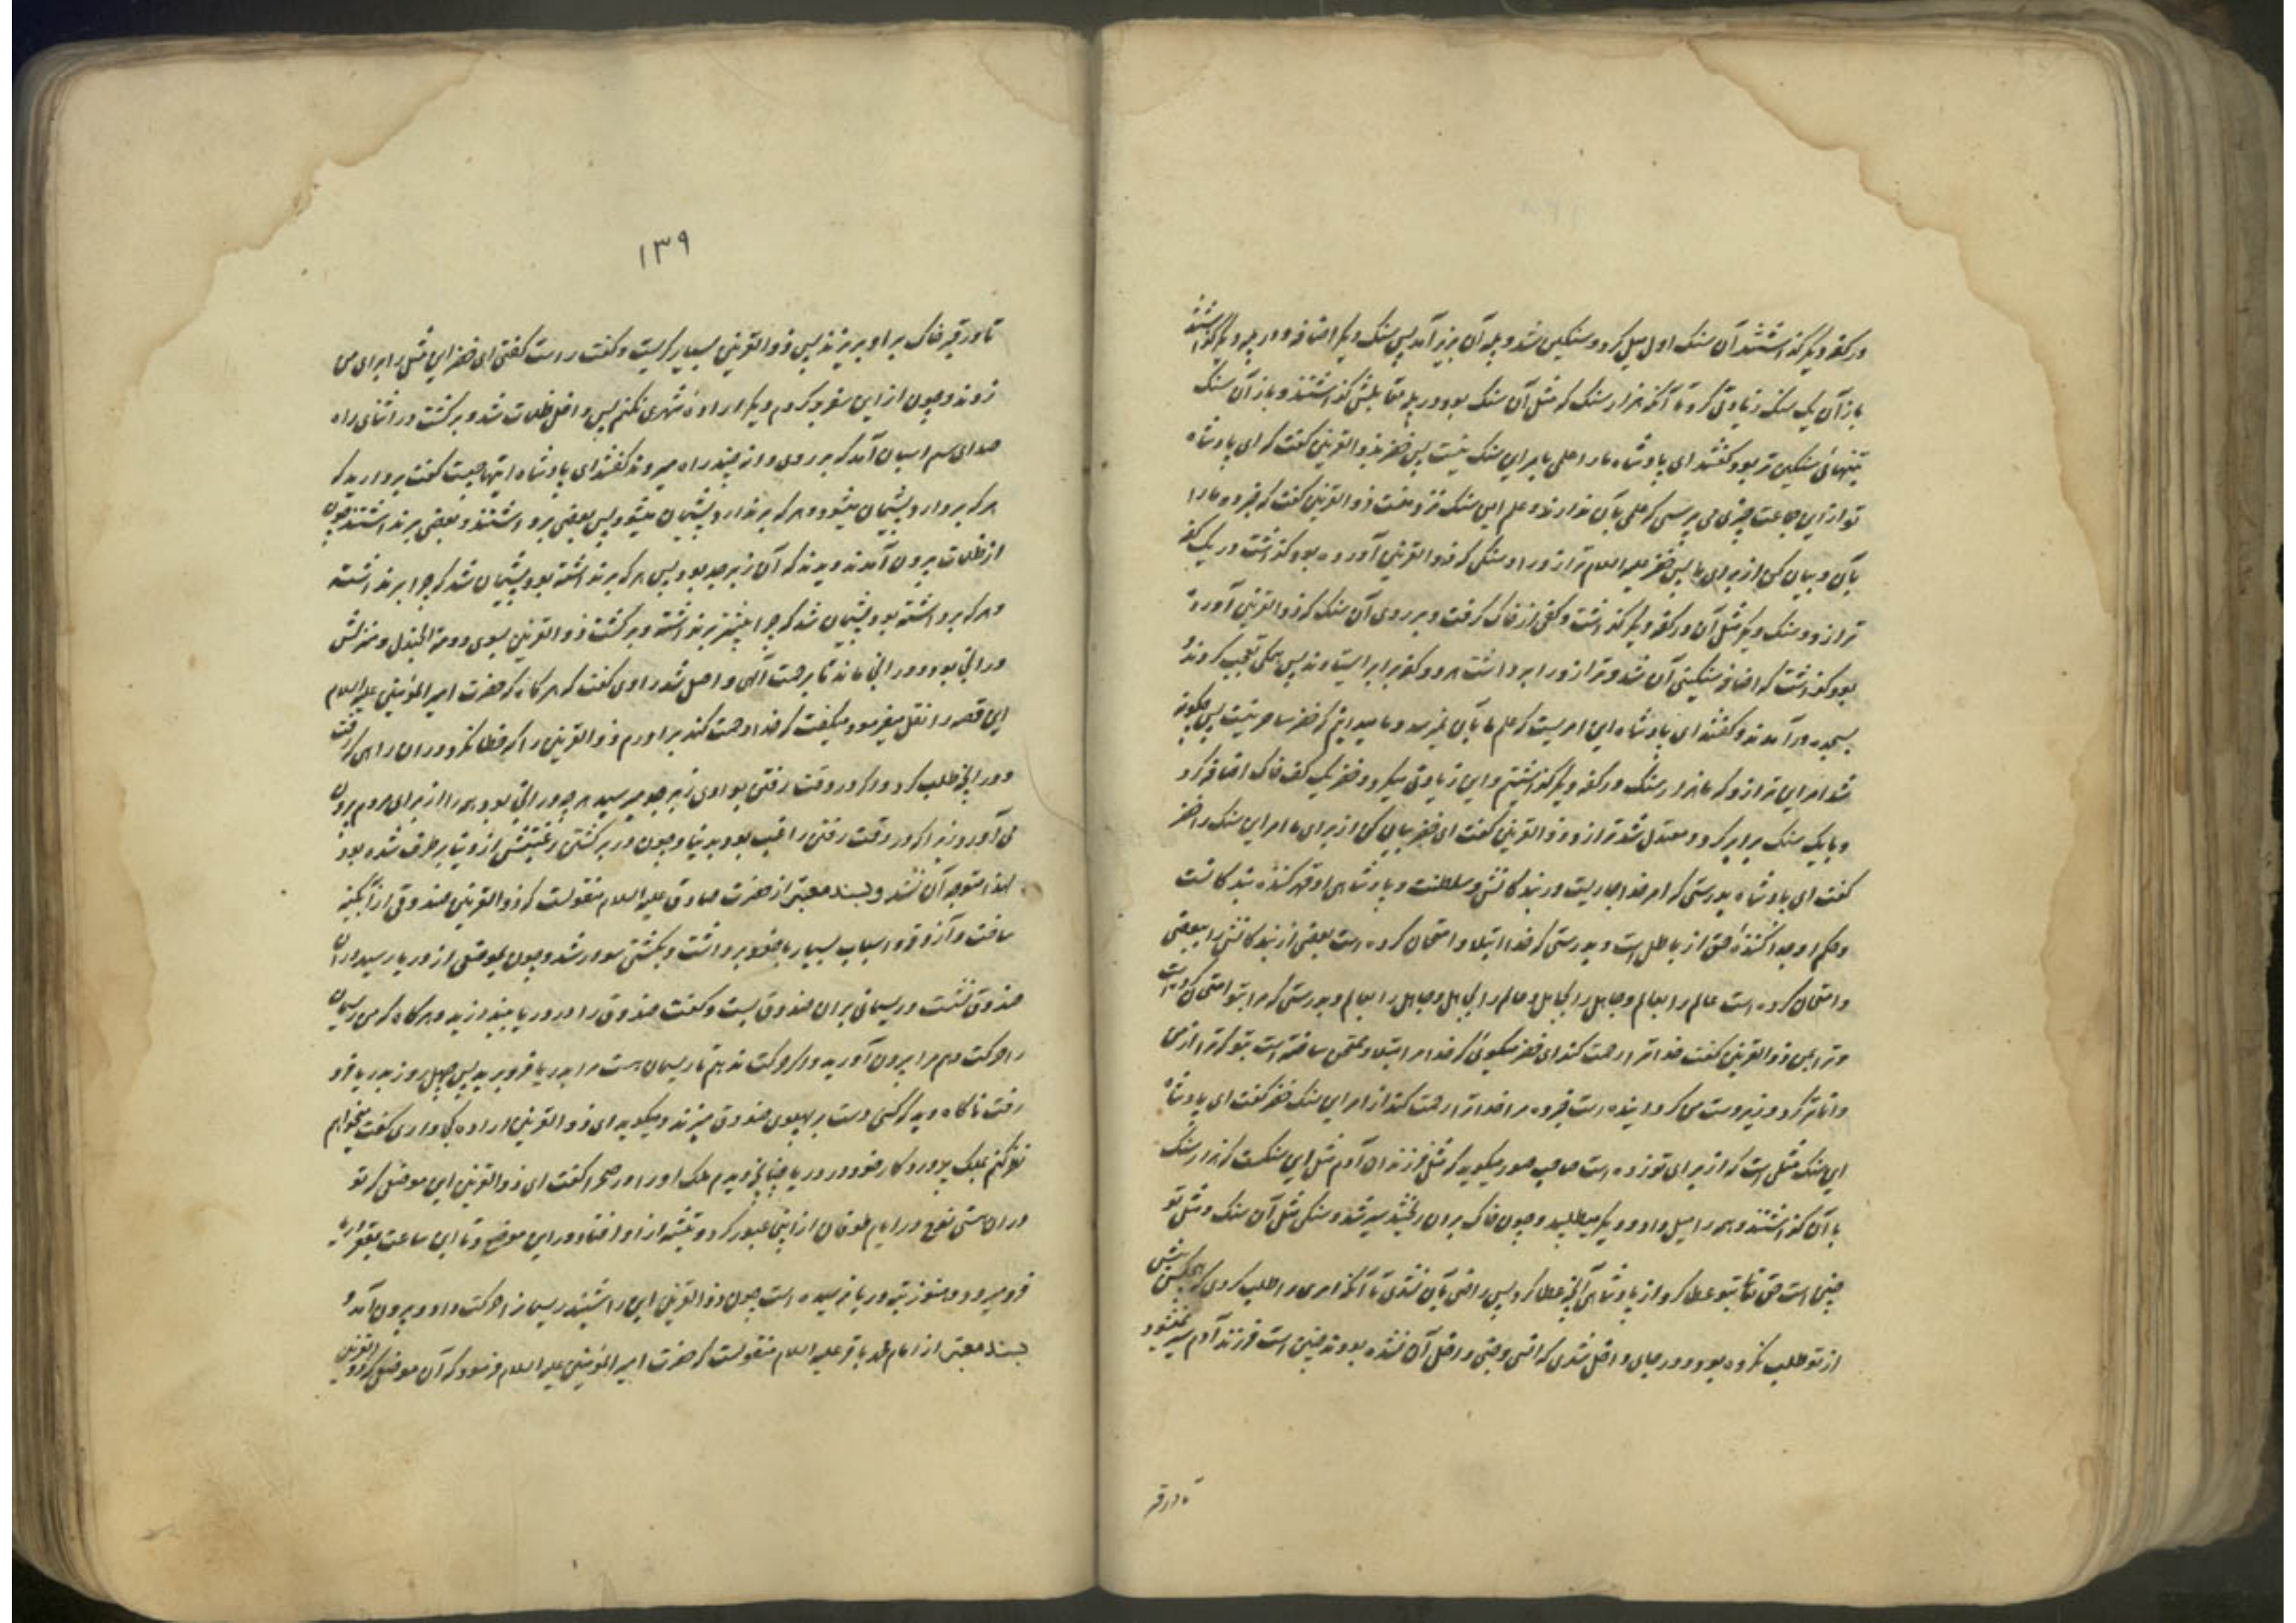 در کفه دیگر گذاشتند آن سنک اول میل کرد و سنکین شد و پله آن بزیر آمد پس سنک دیکر اضافه در پله دیکر گذاشتند
باز آن یک سنک زیادتی کرد تا آنکه هزار سنک که مثل آن سنک بود در پله مقابلش گذاشتند و باز آن سنک
بتنهائی سنکین تر بود گفتند ای پادشاه ما را علمی بامر این سنک نیست پس خضر بذوالقرنین گفت که ای پادشاه
تو از این جماعت چیزی می پرسی که علمی بآن ندارند و علم این سنک نزد منست ذوالقرنین گفت که خبر ده ما را
بآن و بیان کن از برای ما پس خضر علیه السلام ترازو را و سنکی که ذوالقرنین آورده بود گذاشت در یک کفه
ترازو و سنک دیکر مثل آن در کفه دیکر گذاشت و کفی از خاک گرفت و بر روی آن سنک که ذوالقرنین آورده
بود گذاشت که اضافه سنکینی آن شد و ترازو را برداشت هر دو کفه برابر ایستادند پس همکی تعجب کردند و
بسجده در آمدند و گفتند ای پادشاه این امریست که علم ما بآن نمیرسد و ما میدانیم که خضر ساحر نیست پس چگونه
شد امر این ترازو که ما هزار سنک در کفه دیکر گذاشتیم و این زیادتی میکرد و خضر یک کف خاک اضافه کرد
و با یک سنک برابر کرد و معتدل شد ترازو و ذوالقرنین گفت ای خضر بیان کن از برای ما امر این سنک را خضر
گفت ای پادشاه بدرستی که امر خدا جاریست در بندکانش و سلطنت و پادشاهی او قهر کننده بندکانست
و حکم او جدا کننده حق از باطل است و بدرستی که خدا ابتلا و امتحان کرده است بعضی از بندکانش را ببعضی
و امتحان کرده است عالم را بعالم و جاهل را بجاهل و عالم را بجاهل و جاهل را بعالم و بدرستی که مرا بتو امتحان کرده است
و ترا بمن ذوالقرنین گفت خدا ترا رحمت کند ای خضر میکوئی که خدا مرا مبتلا و ممتحن ساخته است بتو که ترا از من
داناتر کرد و زیردست من کردانیده است خبر ده مرا خدا ترا رحمت کند از امر این سنک خضر گفت ای پادشاه
این سنک مثلی است که از برای تو زده است صاحب صور میکوید که مثل فرزندان آدم مثل این سنکست که هزار سنک
با آن گذاشتند و همه را میل داد و دیکر میطلبید و چون خاک بر آن ریختند سیر شد و سنکی مثل آن سنک و مثل تو
چنین است حق تعالی بتو عطا کرد از پادشاهی آنچه عطا کرد پس راضی بآن نشدی تا آنکه امری را طلب کردی که هیچکس پیش
از تو طلب نکرده بود و در جای داخل شدی که انسی و جنی داخل آن نشده بودند چنین است فرزند آدم سیر نمیشود
تا در قبر
۱۳۹
تا در قبر خاک بر او بریزند پس ذوالقرنین بسیار کریست و گفت راست گفتی ای خضر این مثل را برای من
زدند و چون از این سفر برکردم دیکر اراده شهری نکنم پس داخل ظلمات شد و برکشت در اثنای راه
صدای سم اسبان آمد که بر روی دانه چند راه میروند گفتند ای پادشاه اینها چیست گفت بردارید که
هر که بردارد پشیمان میشود و هر که برندارد پشیمان میشود پس بعضی برداشتند و بعضی برنداشتند چون
از ظلمات بیرون آمدند دیدند که آن زبرجد بود پس هر که برنداشته بود پشیمان شد که چرا برنداشته
و هر که برداشته بود پشیمان شد که چرا بیشتر برنداشته و برکشت ذوالقرنین بسوی دومة الجندل و منزلش
در آنجا بود و در آنجا ماند تا برحمت الهی واصل شد راوی گفت که هرگاه که حضرت امیر المؤمنین علیه السلام
این قصه را نقل میفرمود میگفت که خدا رحمت کند برادرم ذوالقرنین را که خطا نکرد در آن راهی که رفت
و در آنچه طلب کرد و اگر در وقت رفتن بوادی زبرجد میرسید هر چه در آنجا بود همه را از برای مردم بیرون
می آورد زیرا که در وقت رفتن راغب بود بدنیا و چون در برگشتن رغبتش از دنیا برطرف شده بود
لهذا متوجه آن نشد و بسند معتبر از حضرت صادق علیه السلام منقولست که ذوالقرنین صندوقی از آبگینه
ساخت و آذوقه و اسباب بسیار با خود برداشت و بکشتی سوار شد و چون بموضعی از دریا رسید در آن
صندوق نشست و ریسمانی بر آن صندوق بست و گفت صندوق را در دریا بیندازید و هرگاه که من ریسمان
را حرکت دهم مرا بیرون آورید و اگر حرکت ندهم تا ریسمان هست مرا بدریا فرو برید پس چهل روز بدریا فرو
رفت ناگاه دید که کسی دست بر پهلوی صندوق میزند و میکوید ای ذوالقرنین اراده کجا داری گفت میخواهم
نظر کنم بملک پروردکار خود در دریا چنانچه دیدم ملک او را در صحرا گفت ای ذوالقرنین این موضعی که تو
در آن هستی نوح در ایام طوفان از اینجا عبور کرد و تیشه از او افتاد در این موضع و تا این ساعت بقعر دریا
فرو میرود و هنوز بته دریا نرسیده است چون ذوالقرنین این را شنید ریسمان را حرکت داد و بیرون آمد و
بسند معتبر از امام محمد باقر علیه السلام منقولست که حضرت امیر المؤمنین علیه السلام فرمود که آن موضعی که ذوالقرنین